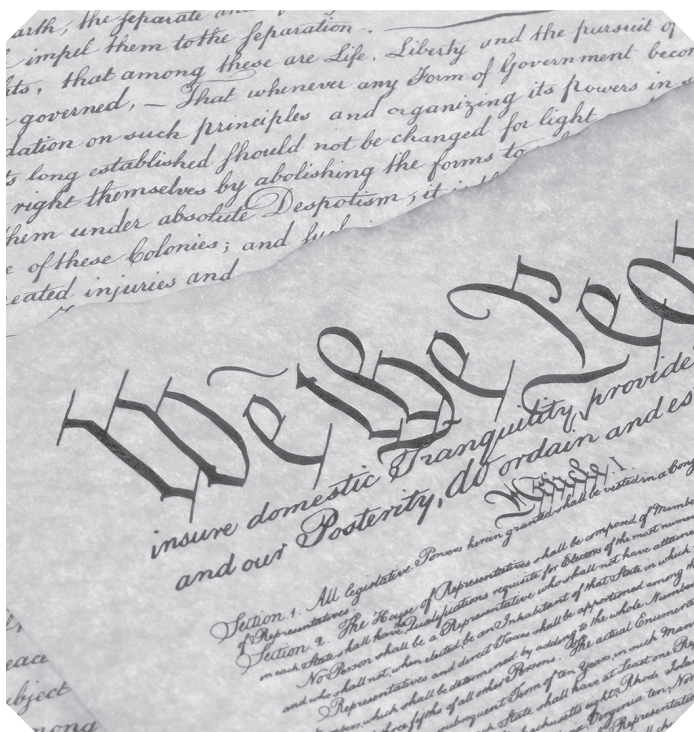 arth, the separate and
impel them to the separation.
ts, that among these are Life, Liberty and the pursuit of
governed, — That whenever any Form of Government becom
dation on such principles and organizing its powers in
s long established should not be changed for light
right themselves by abolishing the forms to
hem under absolute Despotism, it is th
e of these Colonies; and such
eated injuries and
We the Peo
insure domestic Tranquility, provide
and our Posterity, do ordain and es
Article. I.
Section. 1. All legislative Powers herein granted shall be vested in a Cong
of Representatives.
Section. 2. The House of Representatives shall be composed of Membe
in each State shall have Qualifications requisite for Electors of the most nume
No Person shall be a Representative who shall not have attaine
and who shall not, when elected, be an Inhabitant of that State in which
Representatives and direct Taxes shall be apportioned among th
which shall be determined by adding to the whole Number
three fifths of all other Persons. The actual Enumer
subsequent Term of ten Years, in such Mann
State shall have at Least one Rep
eight, Rhode Islan
Virginia ten, Nor
eac
ubject
mong